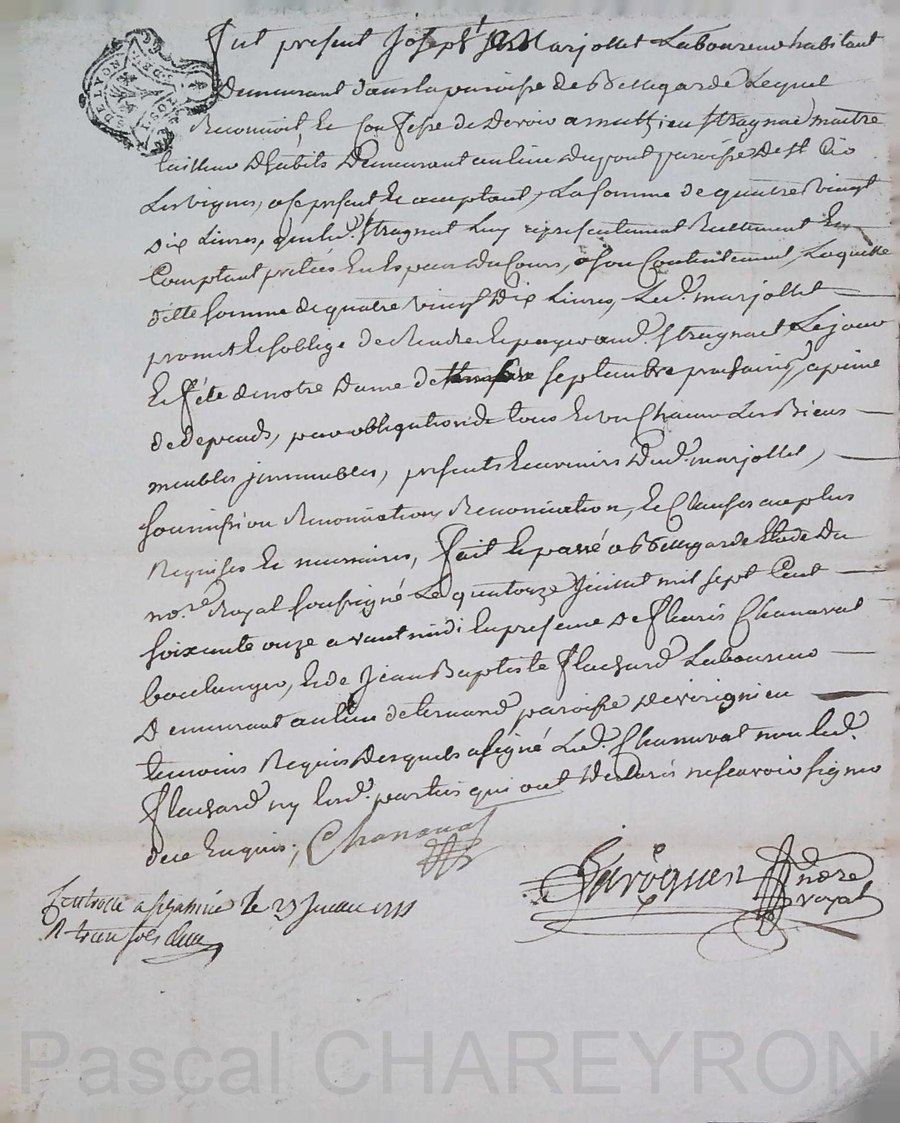 fut present Joseph Marjollet Laboureur habitant
Demeurant dans la paroisse de Bellegarde Lequel
Reconnoit, Et Confesse de Devoir a matthieu stragnat maitre
tailleur D'habits Demeurant au lieu du pont paroisse de st
Les vignes, a ce present Et acceptant, La somme de quatre vingt
dix Livres, que led. stragnat Luy a presentement Reellement En
Comptant pretées En Especes du Cours, a son Contentement, Laquelle
ditte somme de quatre vingt Dix Livres, Led. marjollet
promet Et s'oblige de Rendre Et payer aud. stragnat Le jour
Et fête de notre Dame de septembre prochain, a peine
de depends, par obligation de tous Et un Chacun Les Biens
meubles immeubles, presents Et avenirs Dud. marjollet,
soumission Renonciation, Et Clauses au plus
Requises Et necessaires, fait Et passé a Bellegarde Etude Du
no.re Royal soussigné Le quatorze Juillet mil sept Cent
soixante onze avant midi En presence de fleuris Chanavat
boulanger, Et de Jean Baptiste flachard Laboureur
Demeurant au lieu de paroisse de virignieu
temoins Requis Desquels a signé Led. Chanavat non led.
flachard ny lesd. parties qui ont Declarés ne scavoir signer
de ce Enquis; Chanavat
no.re
royal
le 23